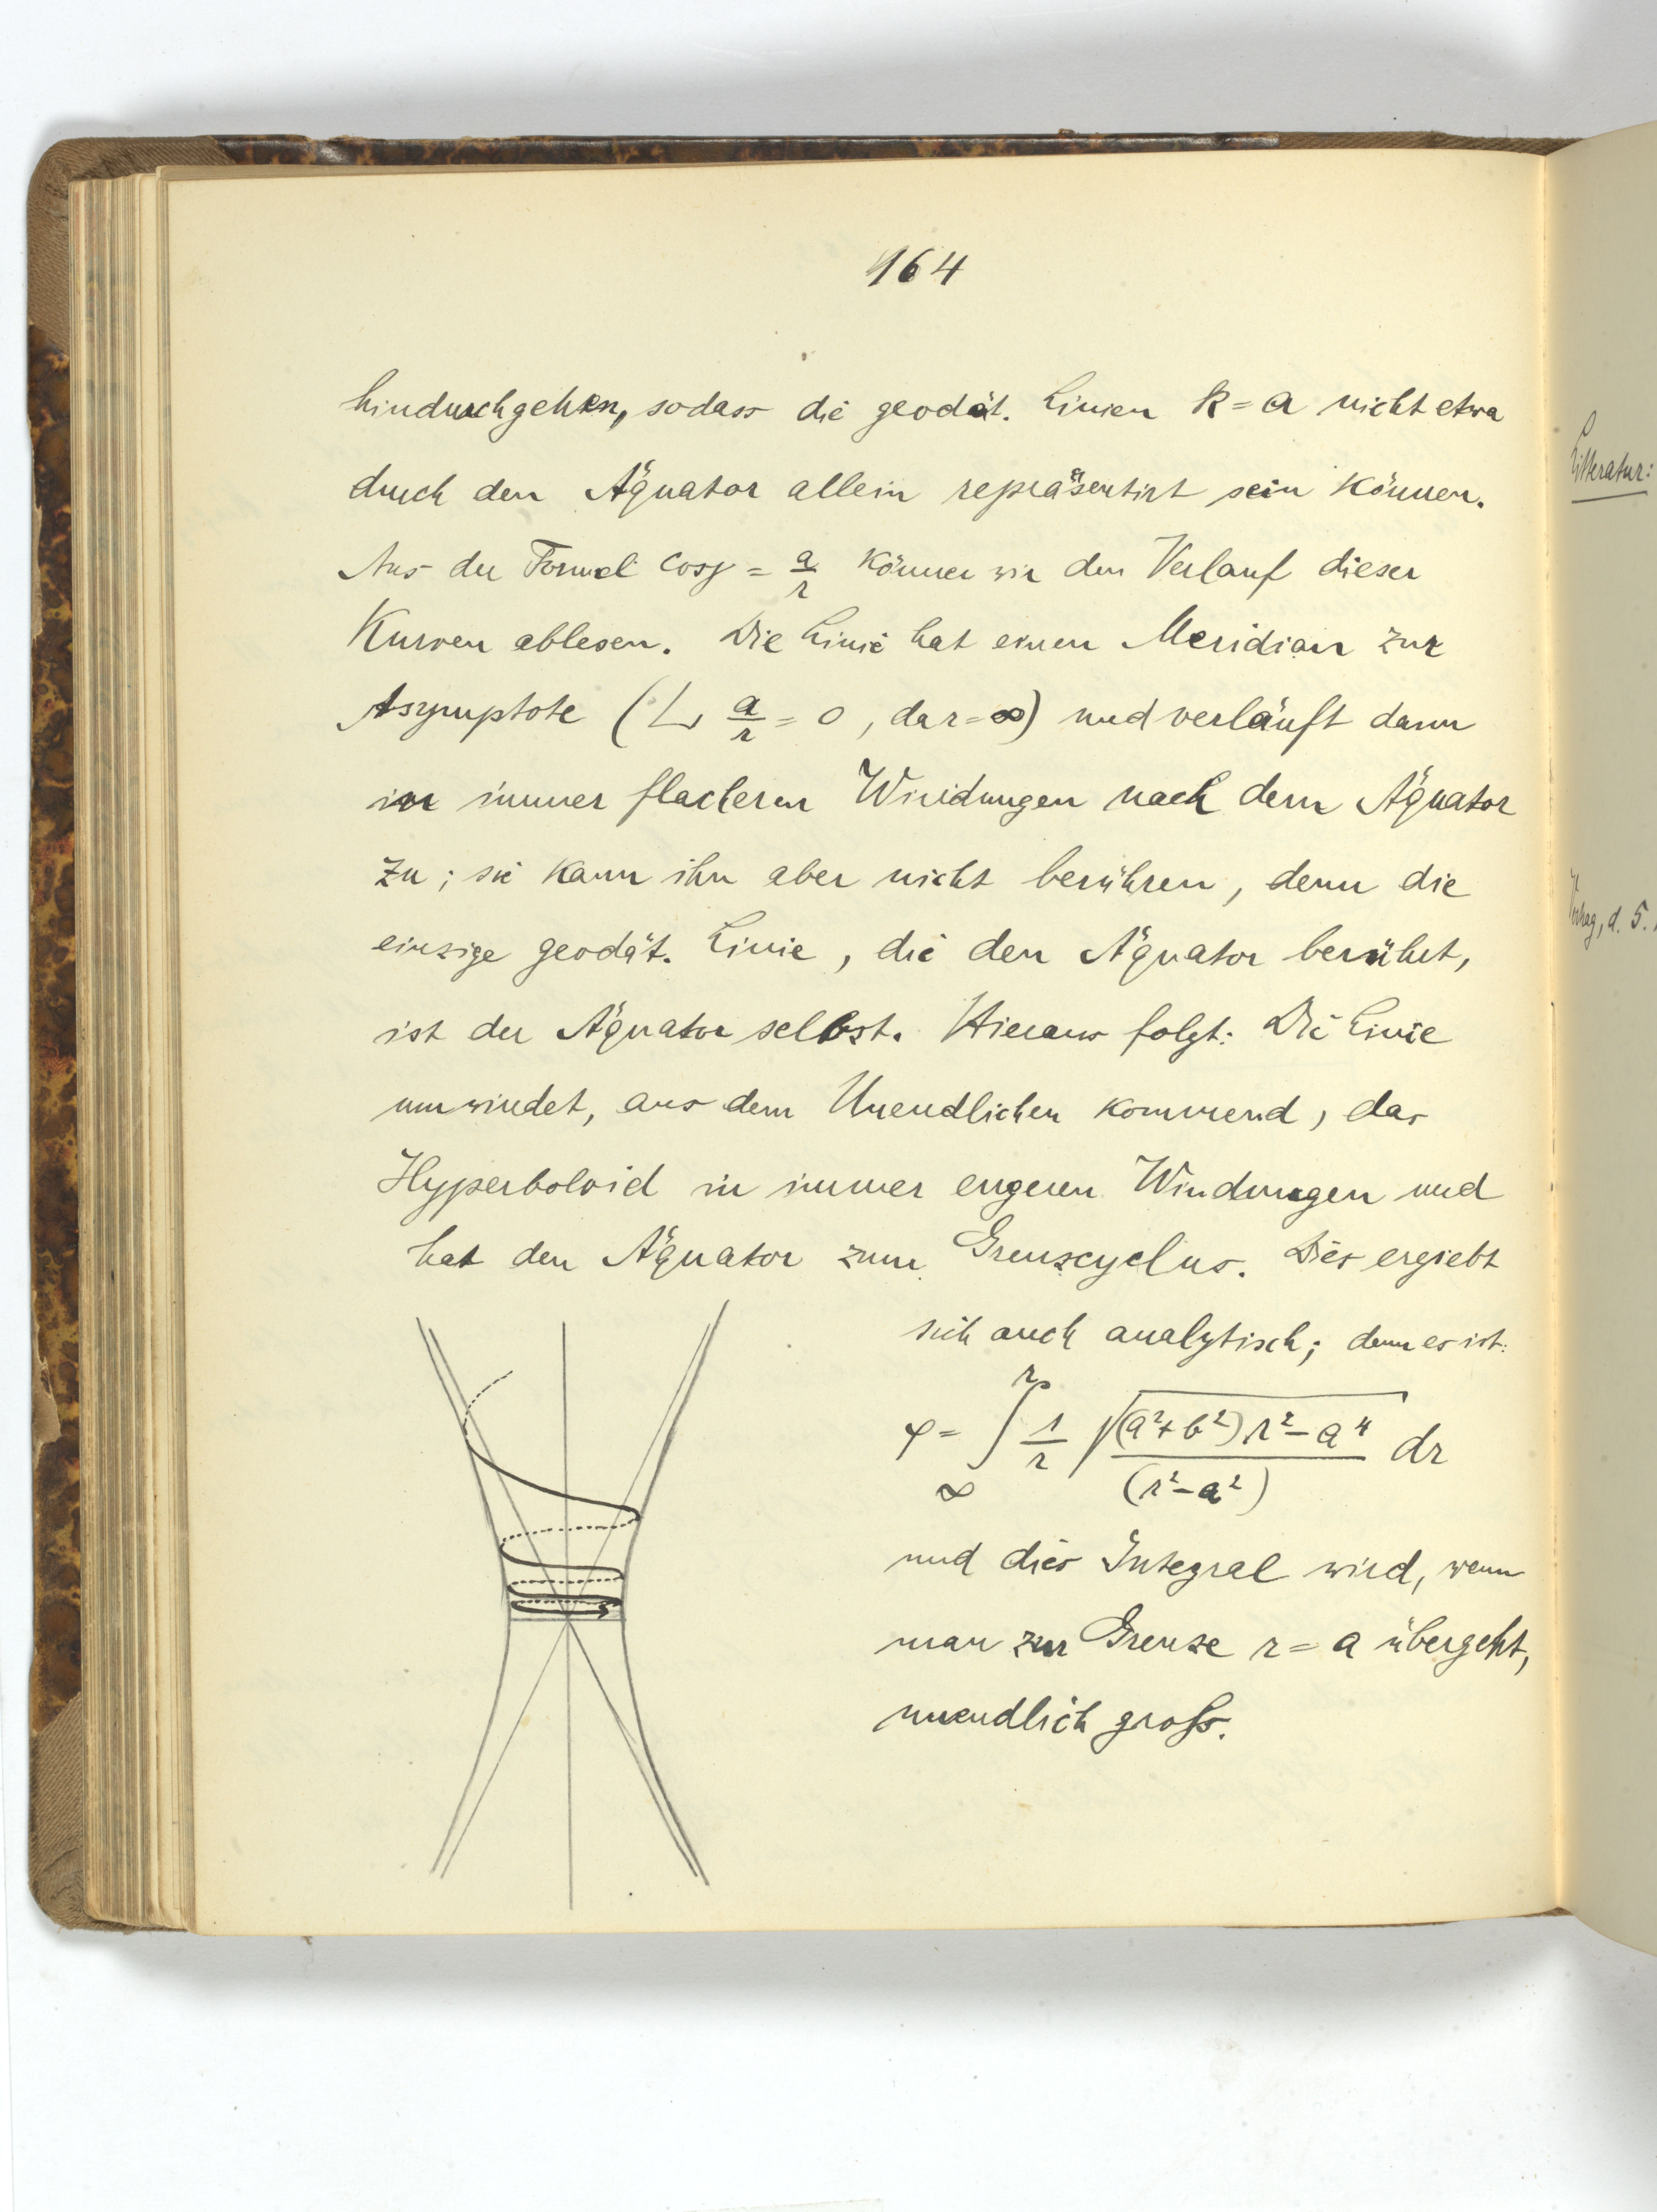 164
hindurchgehen, sodass die geodät. Linien k = a nicht etwa
durch den Äquator allein repräsentirt sein können.
Aus der Formel cos γ = a/r können wir den Verlauf dieser
Kurven ablesen. Die Linie hat einen Meridian zur
Asymptote (L a/r = 0, da r = ∞) und verläuft dann
in immer flacheren Windungen nach dem Äquator
zu; sie kann ihn aber nicht berühren, denn die
einzige geodät. Linie, die den Äquator berührt,
ist der Äquator selbst. Hieraus folgt: Die Linie
umwindet, aus dem Unendlichen kommend, das
Hyperboloid in immer engeren Windungen und
hat den Äquator zum Grenzcyclus. Dies ergiebt
sich auch analytisch; denn es ist:
φ = ∫_∞^r 1/r √((a²+b²)r² - a⁴)/(r² - a²) dr
und dies Integral wird, wenn
man zur Grenze r = a übergeht,
unendlich groß.
Litteratur:
Vortrag, d. 5.